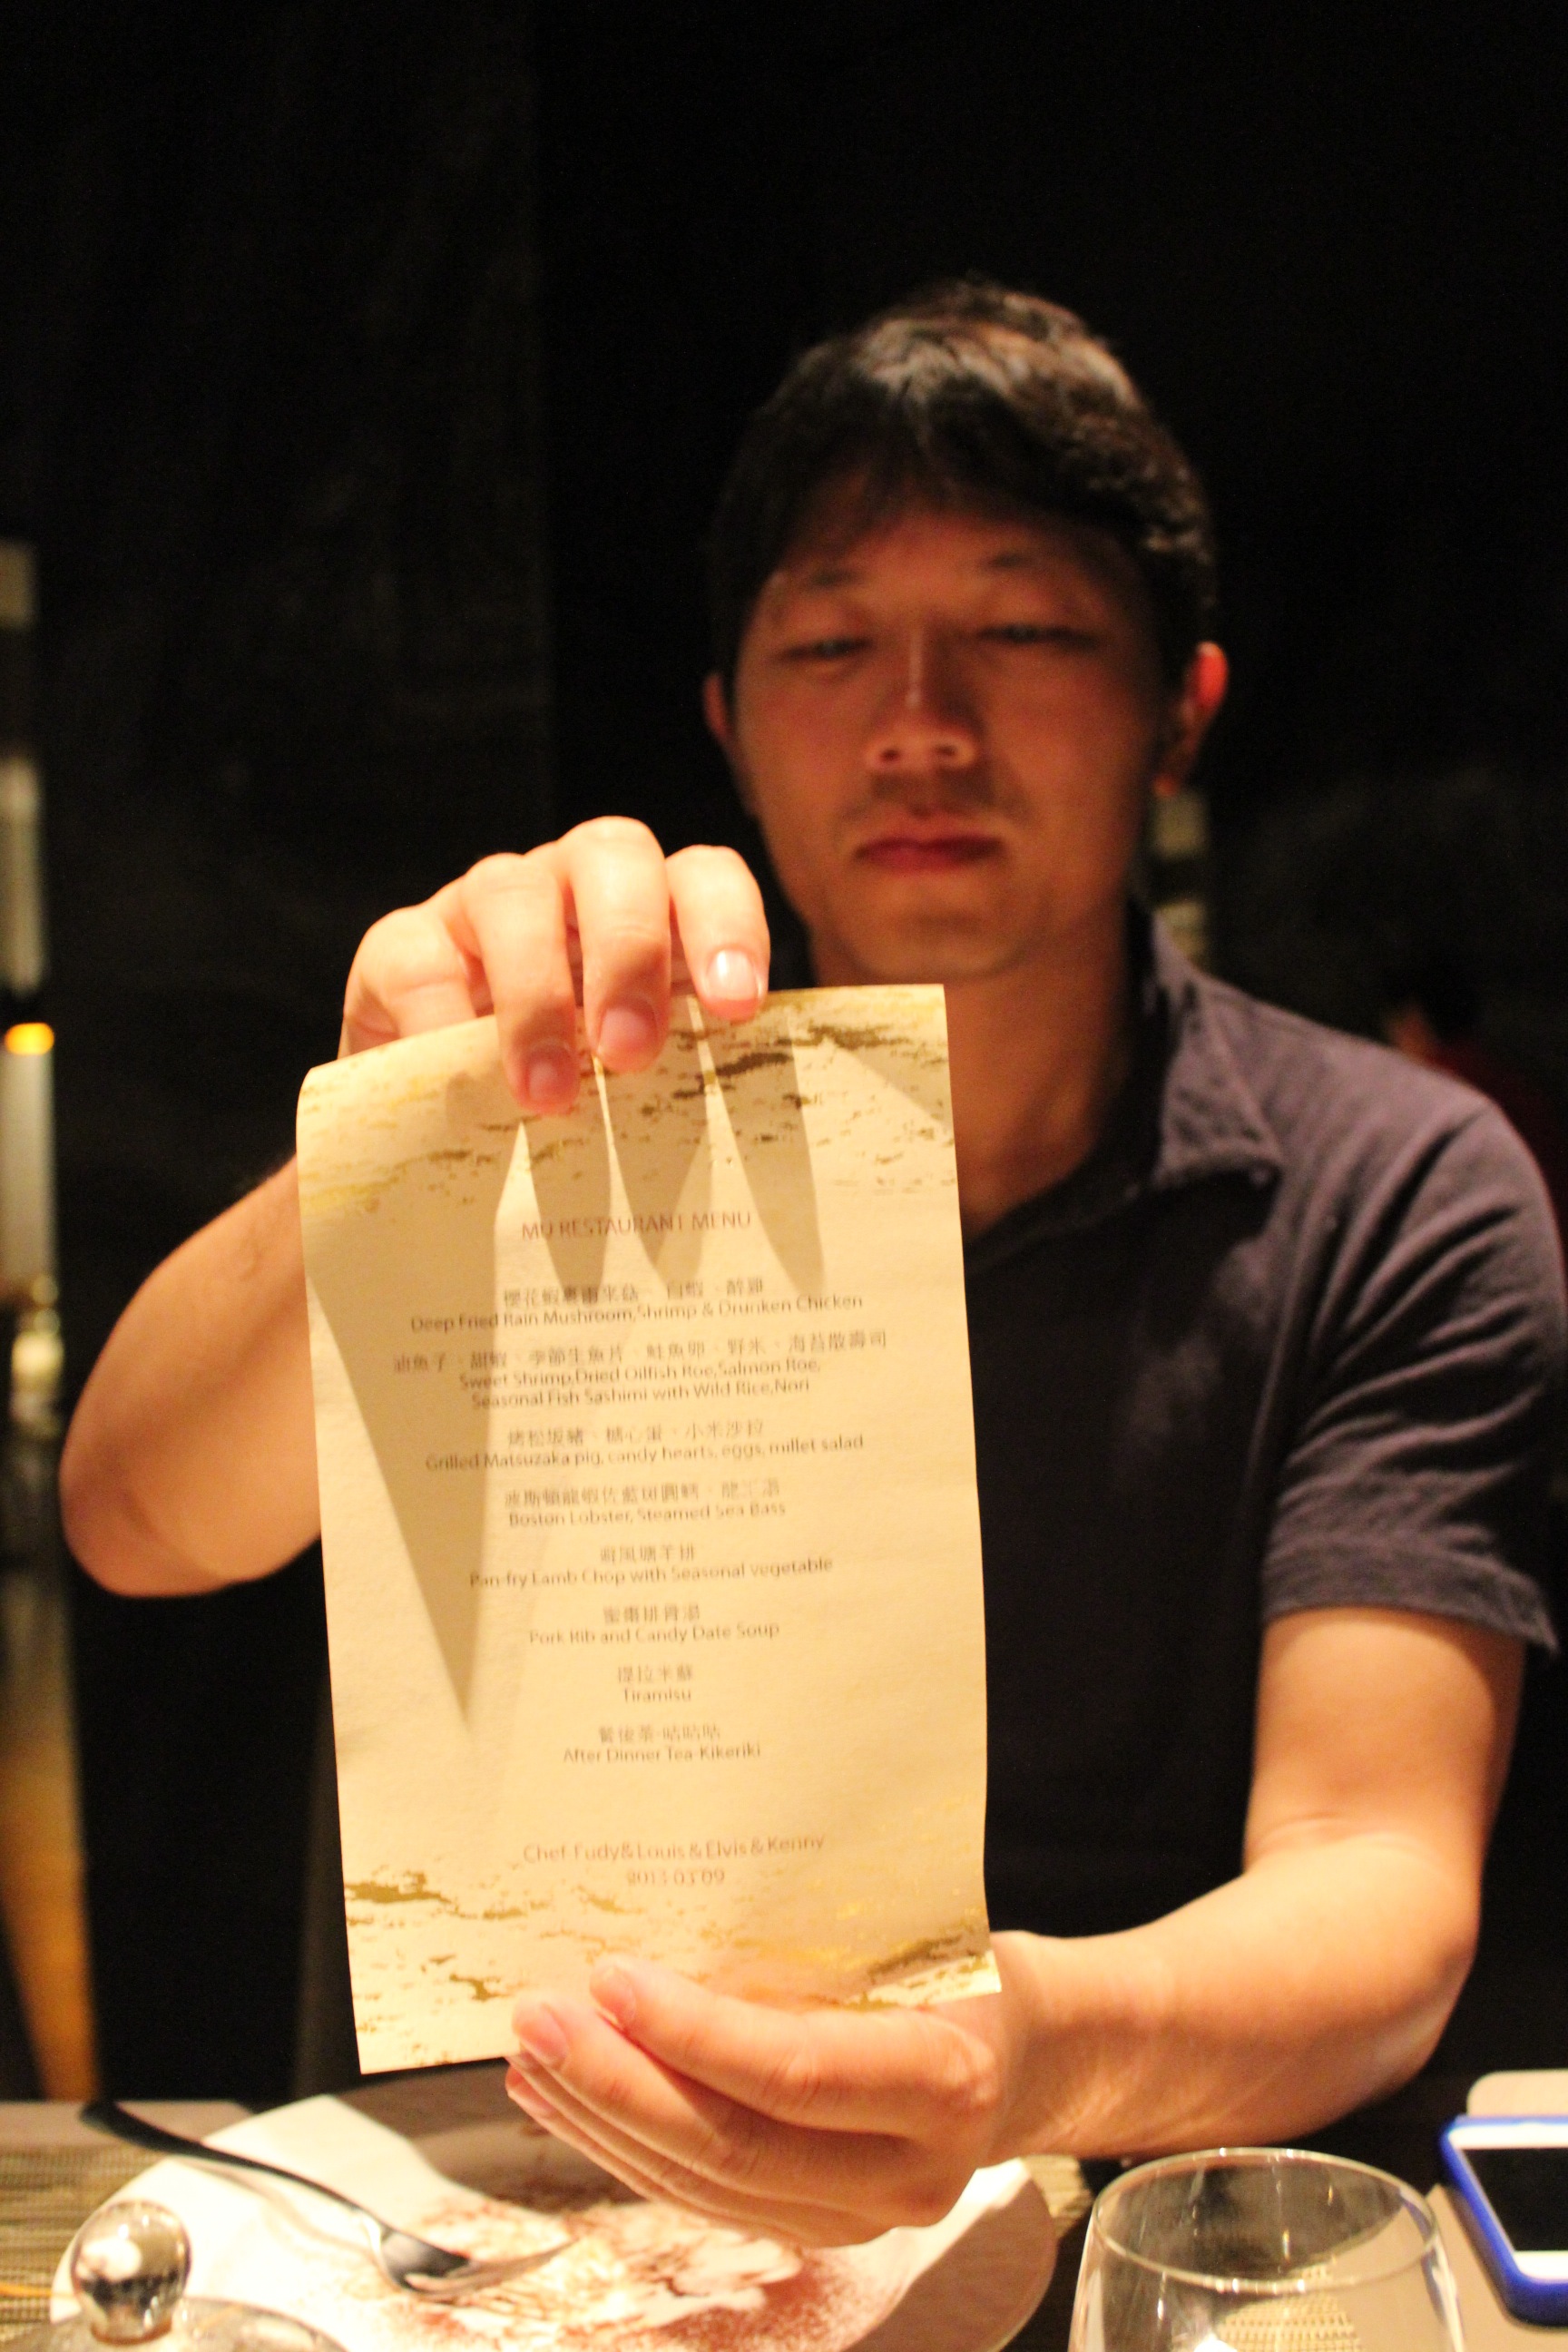 MU RESTAURANT MENU
櫻花蝦裹雨來菇、白蝦、醉雞
Deep Fried Rain Mushroom,Shrimp & Drunken Chicken
油魚子、甜蝦、季節生魚片、鮭魚卵、野米、海苔散壽司
Sweet Shrimp,Dried Oilfish Roe,Salmon Roe,
Seasonal Fish Sashimi with Wild Rice,Nori
烤松坂豬、糖心蛋、小米沙拉
Grilled Matsuzaka pig, candy hearts, eggs, millet salad
波斯頓龍蝦佐藍斑圓鱈、龍
Boston Lobster, Steamed Sea Bass
避風塘羊排
Pan-fry Lamb Chop with Seasonal vegetable
蜜棗排骨湯
Pork Rib and Candy Date Soup
提拉米蘇
Tiramisu
餐後茶-咕咕咕
After Dinner Tea-Kikeriki
Chef. &Louis & Elvis & Kenny
2013 03 09